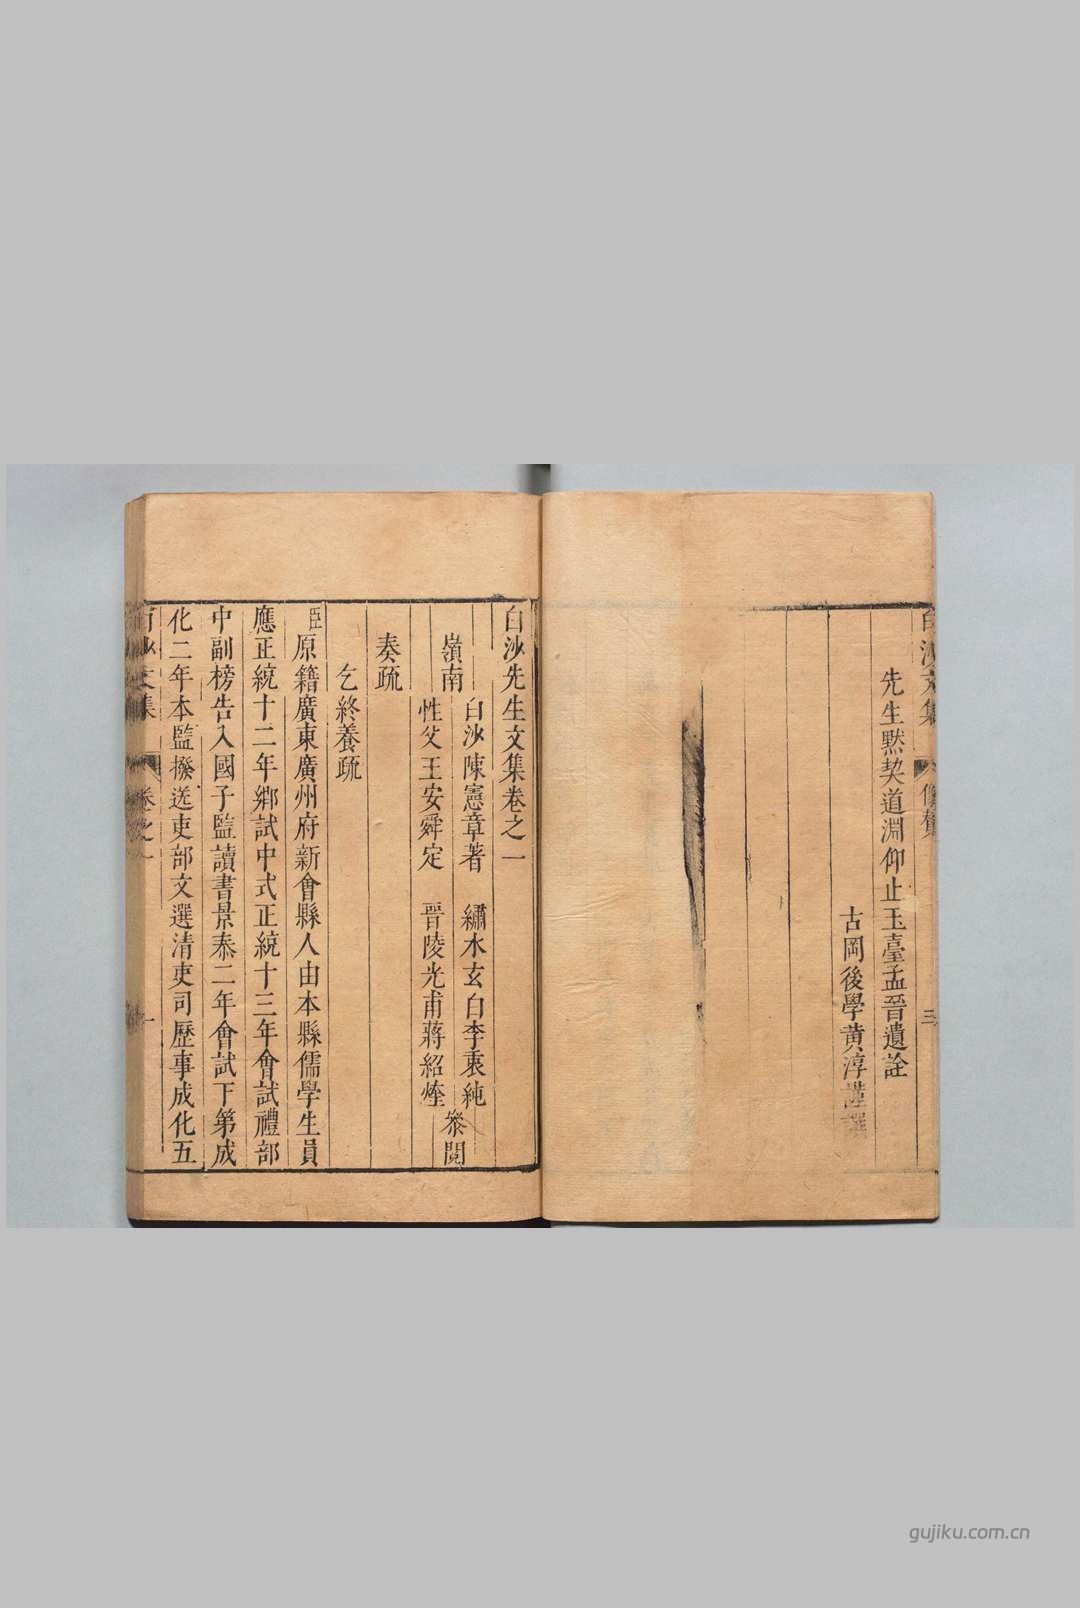 白沙文集
像贊
三
先生黙契道淵仰止玉臺孟晉遺詮
古岡後學黃淳謹譔
白沙先生文集卷之一
嶺南
白沙陳憲章著 繡水玄白李秉純
性父王安舜定 晉陵光甫蔣紹煃
叅閱
奏疏
乞終養疏
臣原籍廣東廣州府新會縣人由本縣儒學生員
應正統十二年鄉試中式正統十三年會試禮部
中副榜告入國子監讀書景泰二年會試下第成
化二年本監撥送吏部文選清吏司歷事成化五
白沙文集
卷之一
一
gujiku.com.cn